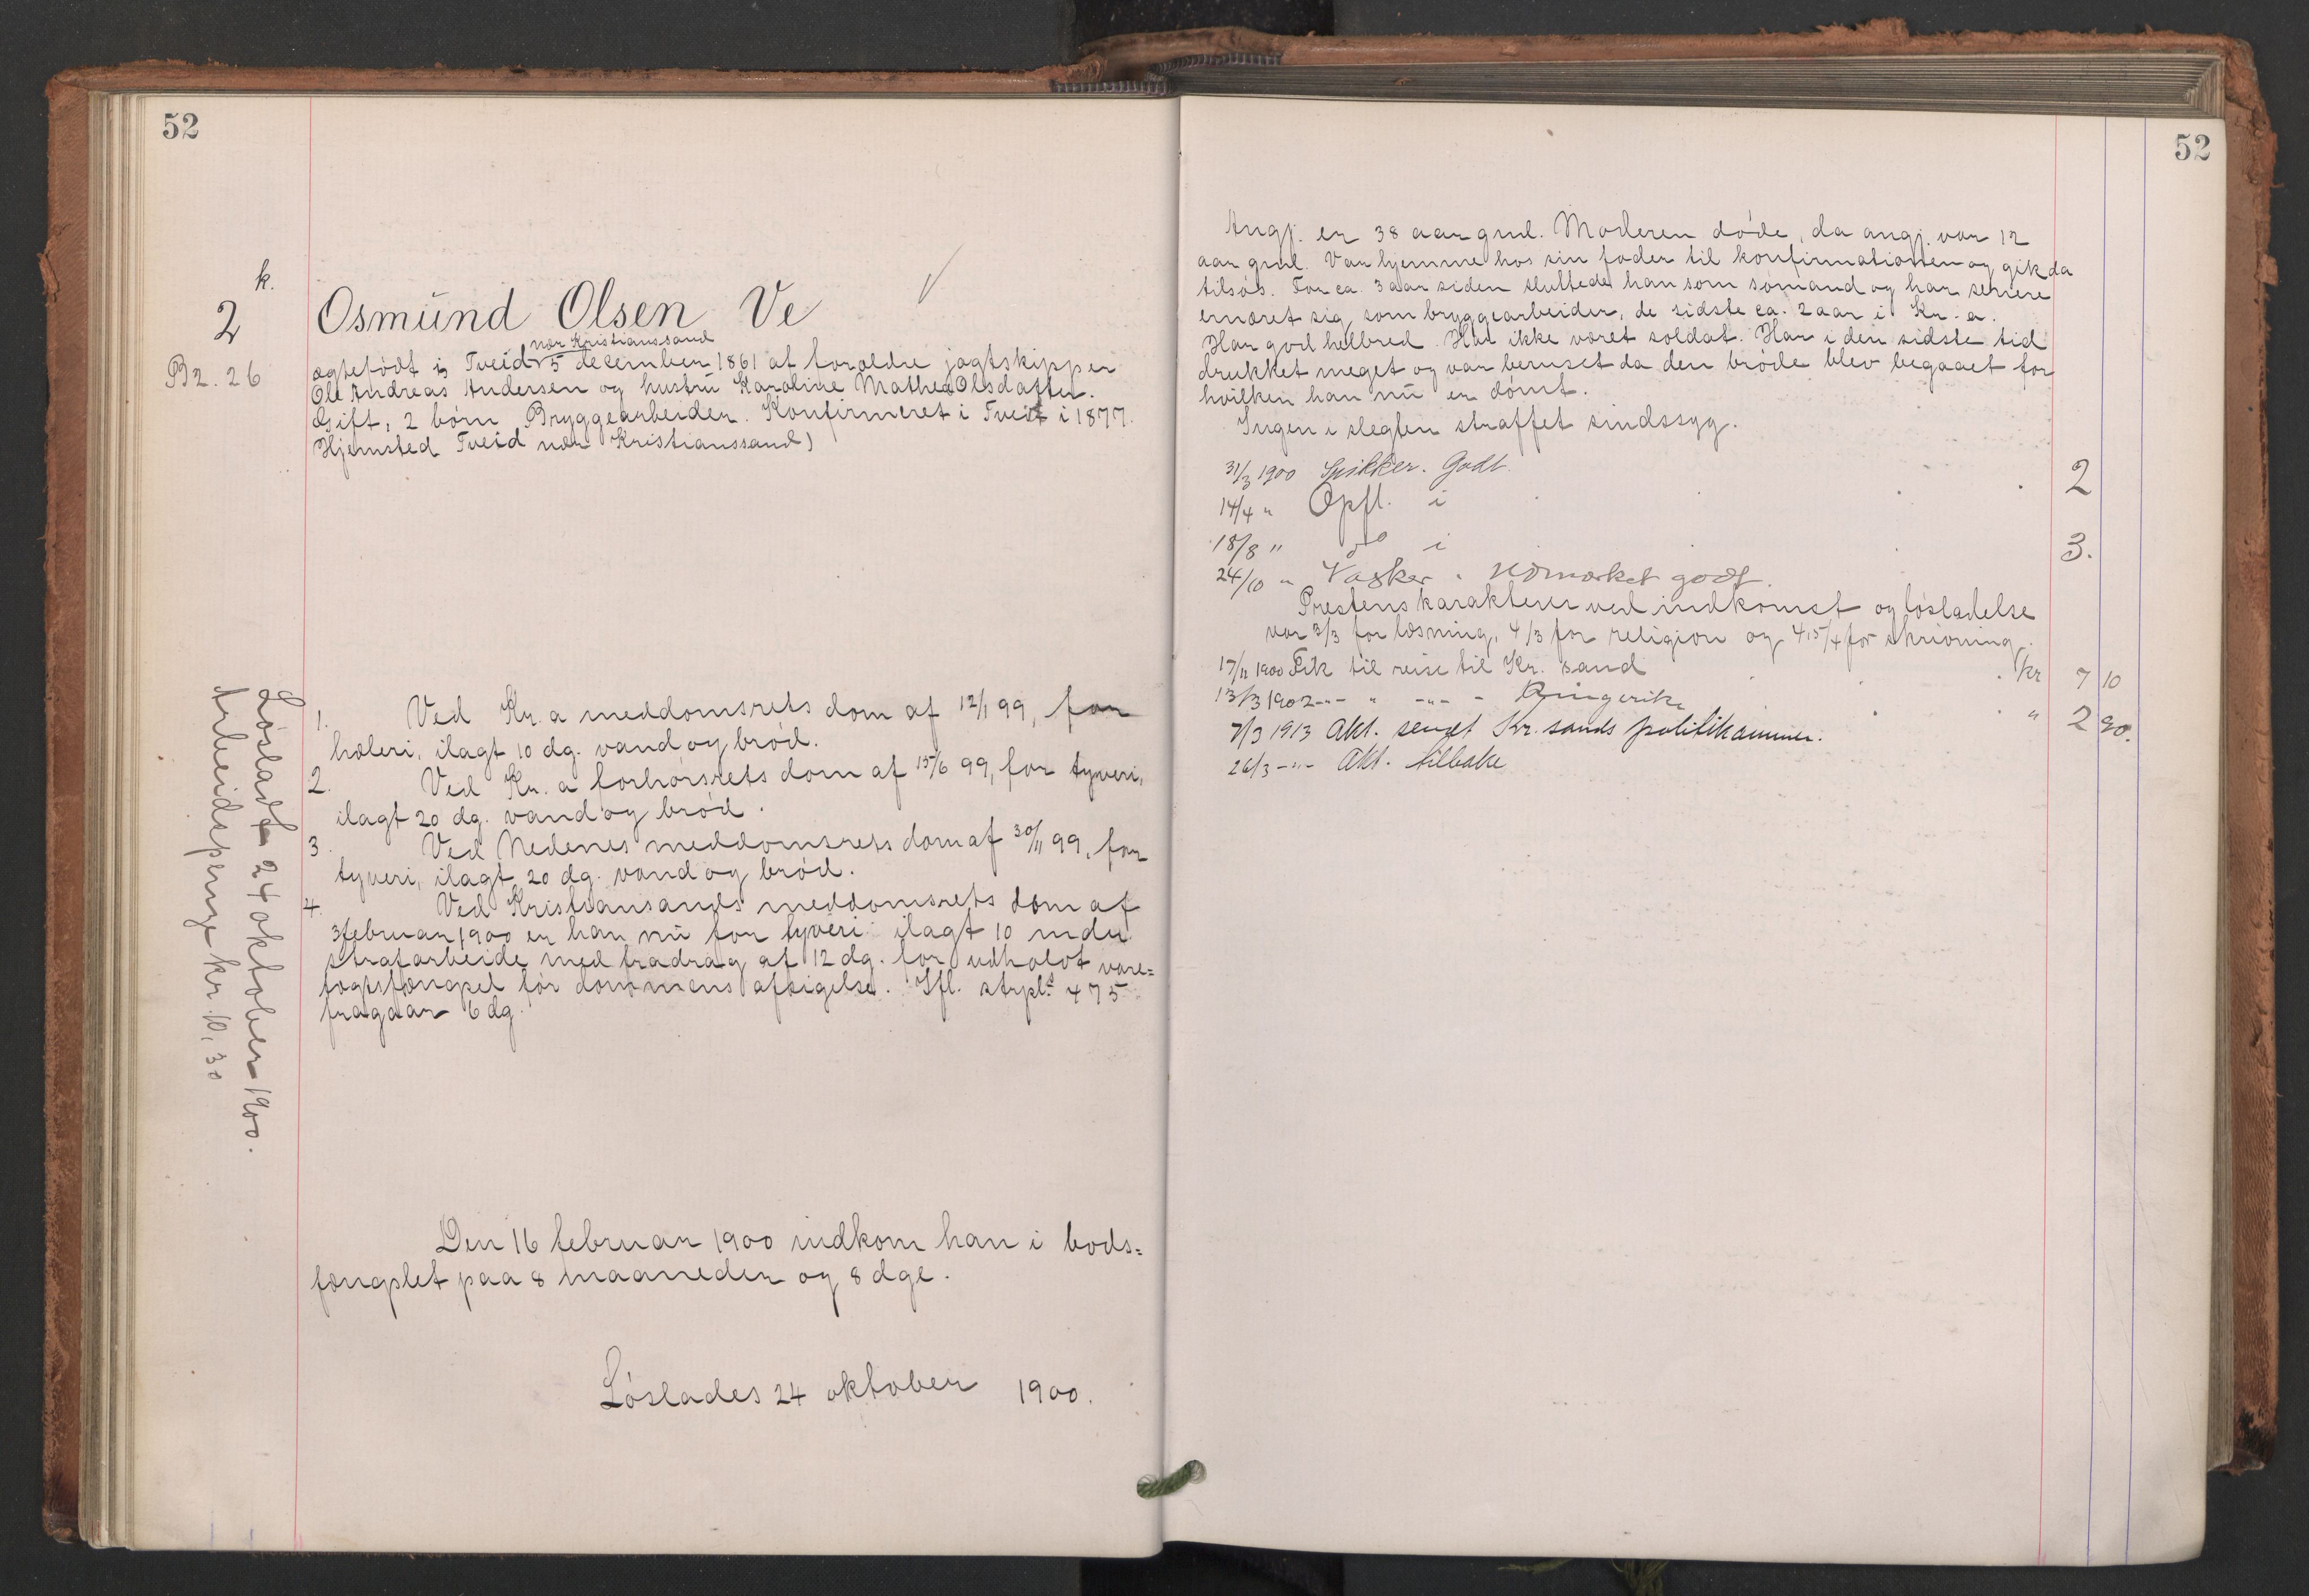 52
k.
2
Bz. 26
Osmund Olsen Ve
nær Kristianssand
ægtefødt i Tveid 5 december 1861 af foreldre jagtskipper
Ole Andreas Andersen og hustru Karoline Mathea Olsdatter.
Gift, 2 börn Bryggearbeider. Konfirmeret i Tveit i 1877.
Hjemsted Tveid nær Kristianssand)
1. Ved Kr.a meddomsrets dom af 12/1 99, for
hæleri, ilagt 10 dg. vand og bröd.
2. Ved Kr.a forhörsrets dom af 15/6 99, for tyveri,
ilagt 20 dg. vand og bröd.
3 Ved Nedenes meddomsrets dom af 30/11 99, for
tyveri, ilagt 20 dg. vand og bröd.
4. Ved Kristiansands meddomsrets dom af
3 februar 1900 er han nu for tyveri ilagt 10 mdrs
strafarbeide med fradrag af 12 dg. for udholdt vare=
tægtsfængsel för dommens afsigelse. Ifl. strpl. § 475
fragaar 6 dg.
Lösladt 24 oktober 1900.
Arbeidspenge kr. 10,30
Den 16 februar 1900 indkom han i bods=
fængslet paa 8 maaneder og 8 dge.
Löslades 24 oktober 1900.
52
Angj. er 38 aar gml. Moderen döde, da angj. var 12
aar gml. Var hjemme hos sin fader til konfirmationen og gik da
tilsös. For ca. 3 aar siden sluttede han som sömand og har senere
ernæret sig som bryggearbeider, de sidste ca. 2 aar i Kr.a.
Har god helbred. Har ikke været soldat. Har i den sidste tid
drukket meget og var beruset da den bröde blev begaaet for
hvilken han nu er dömt.
Ingen i slegten straffet sindssyg.
31/3 1900 Snikker. Godt.
14/4 " Opfl. i 2
18/8 " do i 3.
24/10 " Vasker. Udmærket godt.
Prestens karakterer ved indkomst og lösladelse
var 3/3 for læsning, 4/3 for religion og 4,5/4 for skrivning.
17/11 1900 Fik til reise til Kr. sand kr 7 10
13/3 1902 -"- " -"- - Ringerike " 2 90.
7/3 1913 Akt. sendt Kr. sands politikammer.
26/3 -"- Akt. tilbake